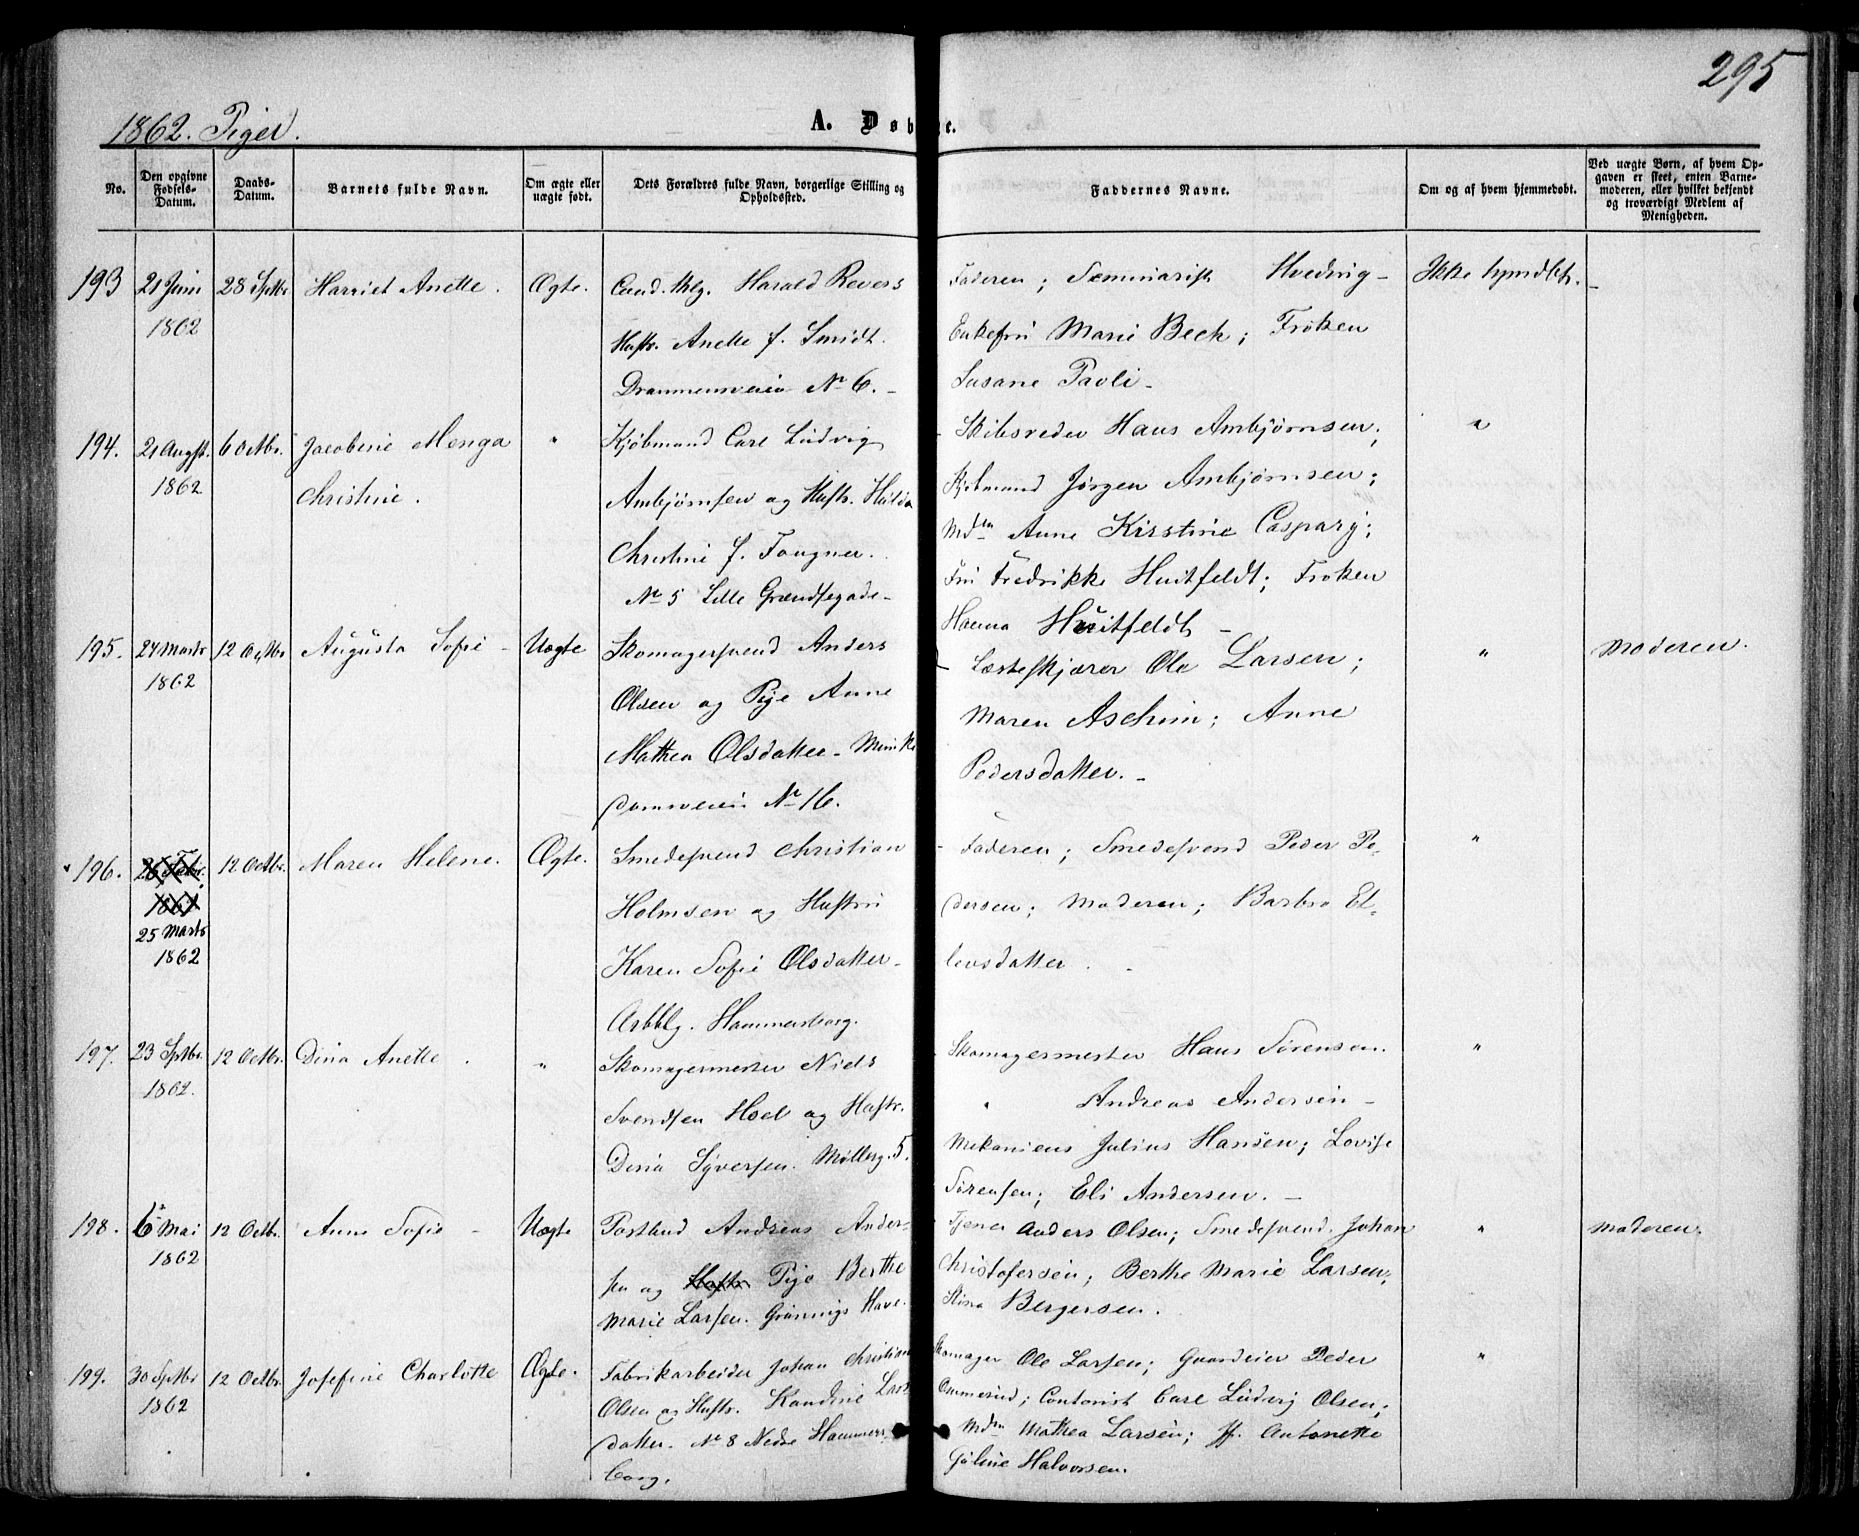 295
1862. Piger.
A. Døbte.
No.
Den opgivne Fødsels-Datum.
Daabs-Datum.
Barnets fulde Navn.
Om ægte eller uægte født.
Dets Forældres fulde Navn, borgerlige Stilling og Opholdssted.
Faddernes Navne.
Om og af hvem hjemmedøbt.
Ved uægte Børn, af hvem Opgaven er skeet, enten Barnemoderen, eller hvilket bekjendt og troværdigt Medlem af Menigheden.
193 21 Juni 1862 28 Sptbr Harriet Anette. Ægte.
Cand. thlg. Harald Revers
Hustr. Anette f. Smidt.
Drammensveien No 6.
Faderen; Seminarist Hveding
Enkefru Marie Beck; Frøken
Susane Pavli
Ikke hjmdbt.
194. 21 Augst. 1862 6 Octbr. Jacobine Menga Christine. "
Kjøbmand Carl Ludvig
Ambjørnsen og Hustr. Hulda
Christine f. Fougner.
No 5 Lille Grændsegade
Skibsreder Hans Ambjørnsen;
Kjøbmand Jørgen Ambjørnsen;
Mdm Anne Kirstine Caspary;
Fru Fredrikke Huitfeldt; Frøken
Hanna Huitfeldt
"
195. 24 Marts 1862 12 Octbr Augusta Sofie Uægte
Skomagersvend Anders
Olsen og Pige Anne
Mathea Olsdatter - Munke
damsveien No 16.
Læsteskjærer Ole Larsen;
Maren Aschim; Anne
Pedersdatter.
"
Moderen.
196. 25 Marts 1862 12 Octbr. Maren Helene. Ægte.
Smedesvend Christian
Holmsen og Hustru
Karen Sofie Olsdatter
Arbblg. Hammersborg.
Faderen; Smedesvend Peder Pe-
dersen; Moderen; Barbro El-
levsdatter.
"
197. 23 Sptbr. 1862. 12 Octbr. Dina Anette. "
Skomagermester Niels
Svendsen Hoel og Hustr.
Dina Syversen. Møllerg. 5.
Skomagermester Hans Sørensen.
" Andreas Andersen
Mekanicus Julius Hansen; Lovise
Sørensen; Eli Andersen.
"
198. 6 Mai 1862 12 Octbr. Anne Sofie Uægte
Postbud Andreas Ander-
sen og Hustr Pige Berthe
Marie Larsen. Grønnings Have.
Tjener Anders Olsen; Smedesvend Johan
Christofersen; Berthe Marie Larsen,
Stina Bergersen.
"
Moderen.
199. 30 Sptbr 1862 12 Octbr. Josefine Charlotte Ægte.
Fabrikarbeider Johan Christian
Olsen og Hustr. Kandine Lars-
datter. No 8 Nedre Hammers-
borg.
Skomager Ole Larsen; Gaardeier Peder
Ommerud; Contorist Carl Ludvig Olsen;
Mdm Mathea Larsen; Jf. Antonette
Juline Halvorsen.
"